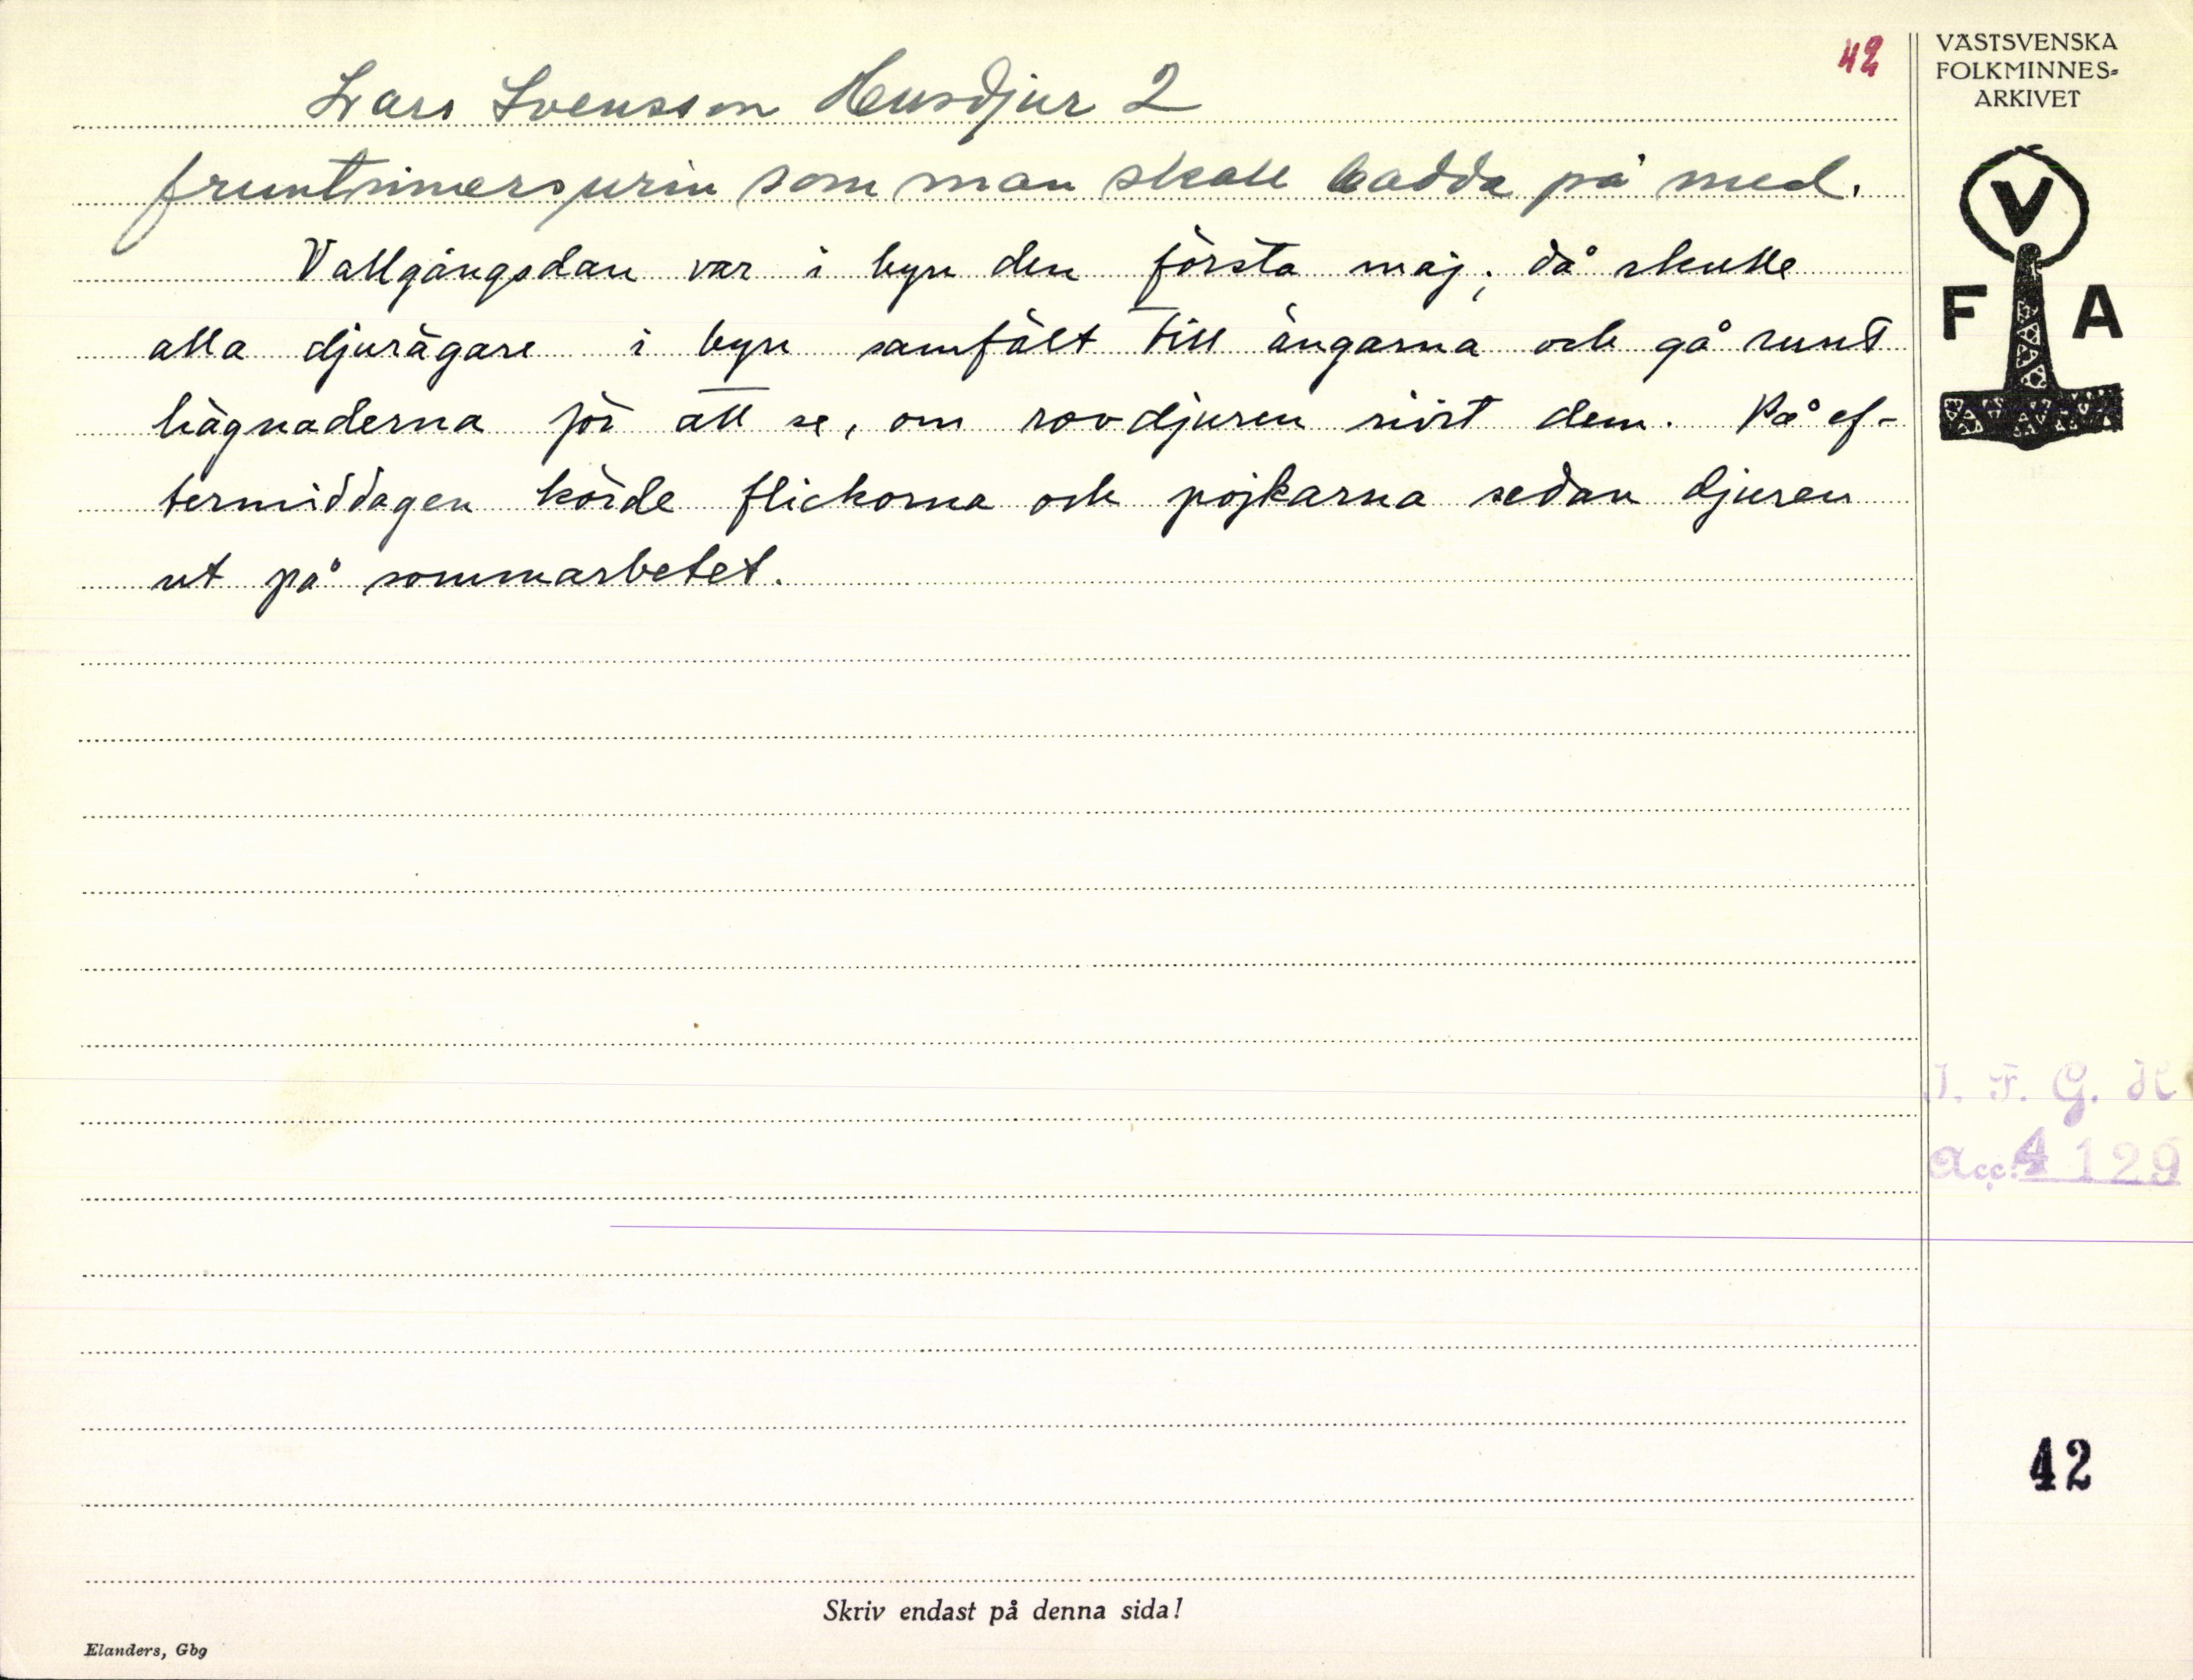 42
VÄSTSVENSKA
FOLKMINNES-
ARKIVET
Lars Svensson Husdjur 2
fruntimersurin som man skall badda på med.
Vallgångsdan var i byn den första maj; då skulle
alla djurägare i byn samfält till ängarna och gå runt
hägnaderna för att se, om rovdjuren rivit dem. På ef-
termiddagen körde flickorna och pojkarna sedan djuren
ut på sommarbetet.
V
F A
I. F. G. H
Acc. 4129
42
Skriv endast på denna sida!
Elanders, Gbg